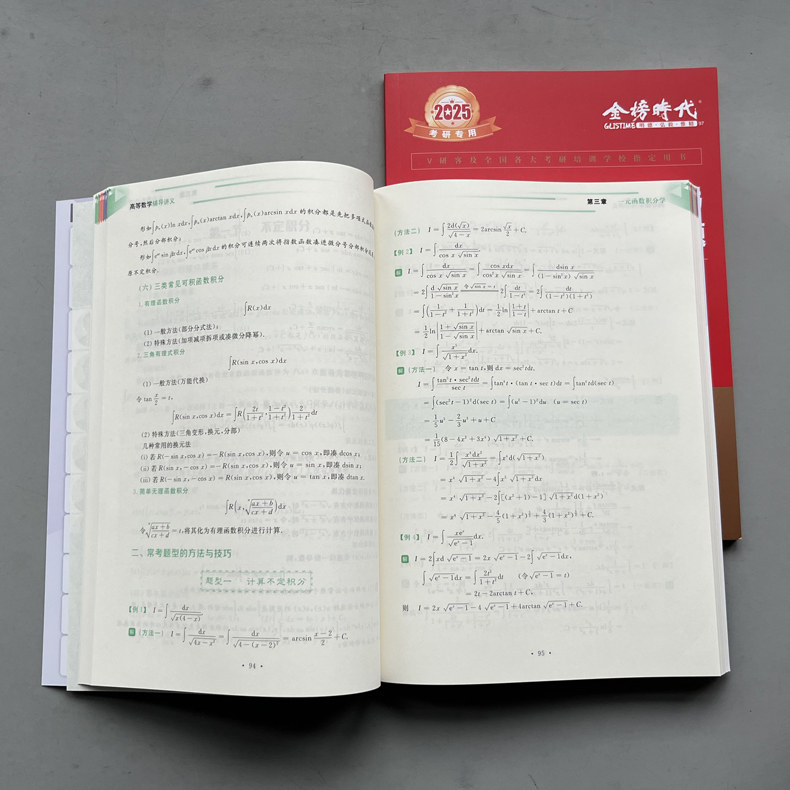 高等数学辅导讲义
形如∫pₙ(x)ln xdx,∫pₙ(x)arctan xdx,∫pₙ(x)arcsin xdx 的积分都是先把多项式
分号,然后分部积分;
的积分可连续两次将指数函数凑进微分号分部积分
原不定积分.
(六) 三类常见可积函数积分
1. 有理函数积分
∫R(x)dx
(1) 一般方法(部分分式法);
(2) 特殊方法(加项减项拆项或凑微分降幂).
2. 三角有理式积分
∫R(sin x,cos x)dx
(1) 一般方法(万能代换)
令 tan x/2 = t,
∫R(sin x,cos x)dx = ∫R(2t/(1+t²), (1-t²)/(1+t²)) 2/(1+t²) dt
(2) 特殊方法(三角变形,换元,分部)
几种常用的换元法
(i) 若 R(-sin x,cos x) =-R(sin x,cos x),则令 u = cos x,即凑 dcos x;
(ii) 若 R(sin x,-cos x) =-R(sin x,cos x),则令 u = sin x,即凑 dsin x;
(iii) 若 R(-sin x,-cos x) = R(sin x,cos x),则令 u = tan x,即凑 dtan x.
3. 简单无理函数积分
∫R(x, ⁿ√((ax+b)/(cx+d)))dx
令 ⁿ√((ax+b)/(cx+d)) = t,将其化为有理函数积分进行计算.
二、常考题型的方法与技巧
题型一 计算不定积分
【例1】 I = ∫dx/√(x(4-x))
解 (方法一) I = ∫dx/√(4x-x²) = ∫dx/√(4-(x-2)²) = arcsin (x-2)/2 + C.
· 94 ·
第三章 一元函数积分学
(方法二) I = ∫2d(√x)/√(4-x) = 2arcsin √x/2 + C.
【例2】 I = ∫dx/(cos x √sin x)
解 I = ∫dx/(cos x √sin x) = ∫cos xdx/(cos²x √sin x) = ∫dsin x/((1-sin²x) √sin x)
= 2∫d√sin x/(1-sin²x) 令√sin x = t 2∫dt/(1-t⁴) = 2∫dt/((1-t²)(1+t²))
= ∫(1/(1-t²) + 1/(1+t²))dt = 1/2 ln|(1+t)/(1-t)| + arctan t + C
= 1/2 ln|(1+√sin x)/(1-√sin x)| + arctan √sin x + C.
【例3】 I = ∫x⁵/√(1+x²) dx.
解 (方法一) 令 x = tan t,则 dx = sec²tdt,
I = ∫(tan⁵t · sec²tdt)/sec t = ∫tan⁴t · (tan t · sec t)dt = ∫tan⁴td(sec t)
= ∫(sec²t-1)²d(sec t) = ∫(u²-1)²du (u = sec t)
= 1/5 u⁵ - 2/3 u³ + u + C
= 1/15 (8-4x²+3x⁴) √(1+x²) + C.
(方法二) I = 1/2 ∫x⁴dx²/√(1+x²) = ∫x⁴d(√(1+x²))
= x⁴ √(1+x²) - 4∫x³ √(1+x²)dx
= x⁴ √(1+x²) - 2∫[(x²+1)-1] √(1+x²)d(1+x²)
= x⁴ √(1+x²) - 4/5 (1+x²)^(5/2) + 4/3 (1+x²)^(3/2) + C.
【例4】 I = ∫xeˣ/√(eˣ-1) dx.
解 I = 2∫xd √(eˣ-1) = 2x √(eˣ-1) - 2∫√(eˣ-1)dx,
∫√(eˣ-1)dx = ∫2t²/(1+t²) dt (令√(eˣ-1) = t)
= 2t-2arctan t + C,
则 I = 2x √(eˣ-1) - 4 √(eˣ-1) + 4arctan √(eˣ-1) + C.
· 95 ·
2025
考研专用
金榜時代
GLISTIME